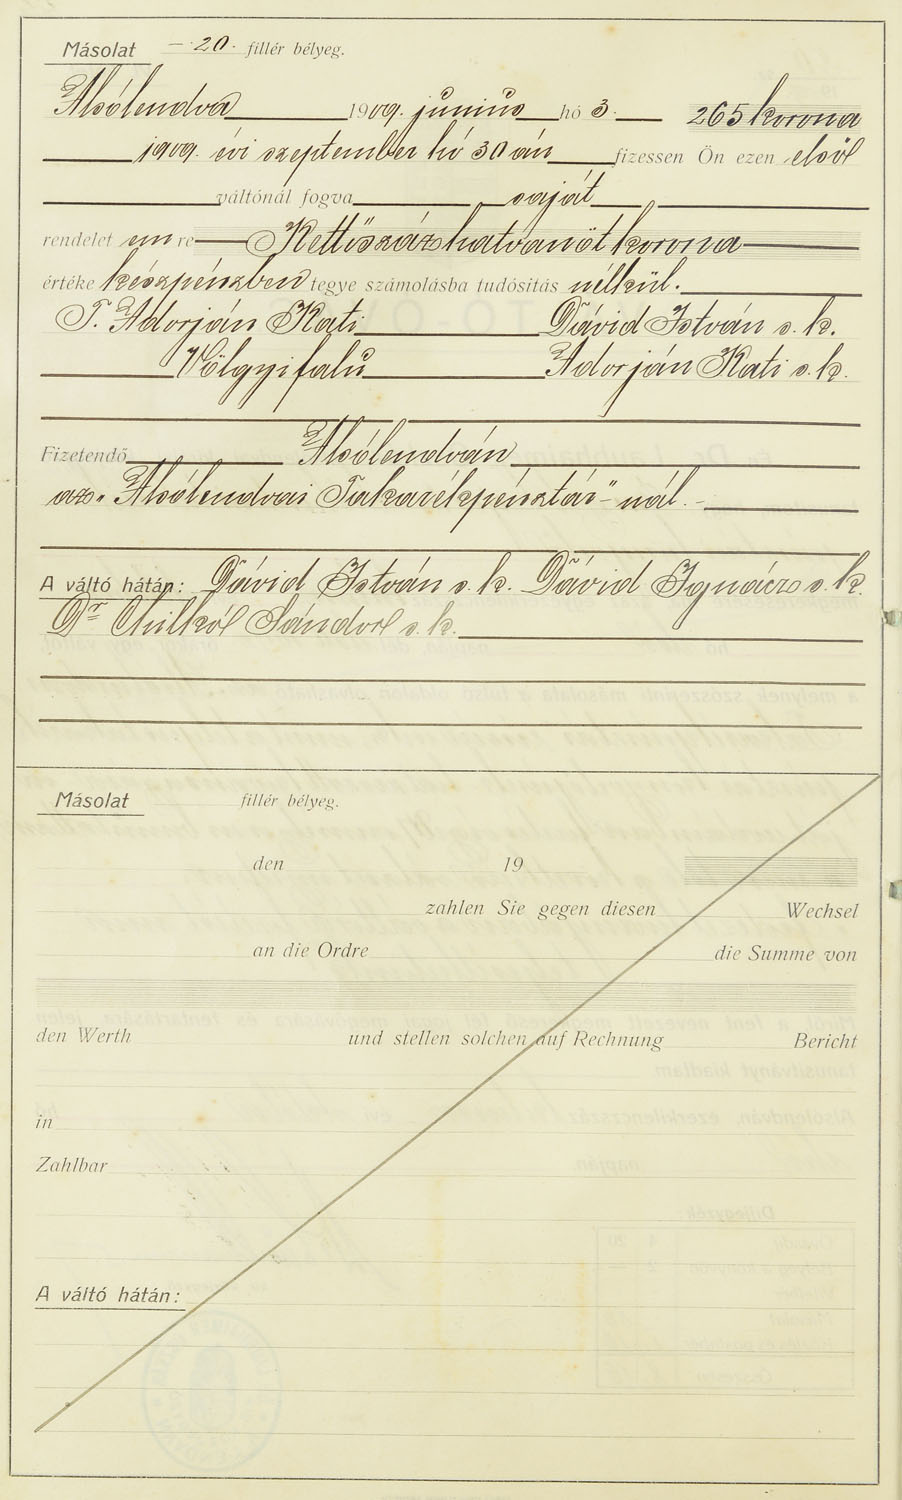 Másolat — 20. fillér bélyeg.
Alsólendva 1909. június hó 3. 265 korona
1909. évi szeptember hó 30 án fizessen Ön ezen első
váltónál fogva saját
rendelet em re Kettőszázhatvanöt korona
értéke készpénzben tegye számolásba tudósitás nélkül.
T. Adorján Kati Dávid István s. k.
Völgyifalu Adorján Kati s. k.
Fizetendő Alsólendván
az „Alsólendvai Takarékpénztár" nál. -
A váltó hátán: Dávid István s. k. Dávid Ignácz s. k.
Dr Sándor s. k.
Másolat fillér bélyeg.
den 19
zahlen Sie gegen diesen Wechsel
an die Ordre die Summe von
den Werth und stellen solchen auf Rechnung Bericht
in
Zahlbar
A váltó hátán: